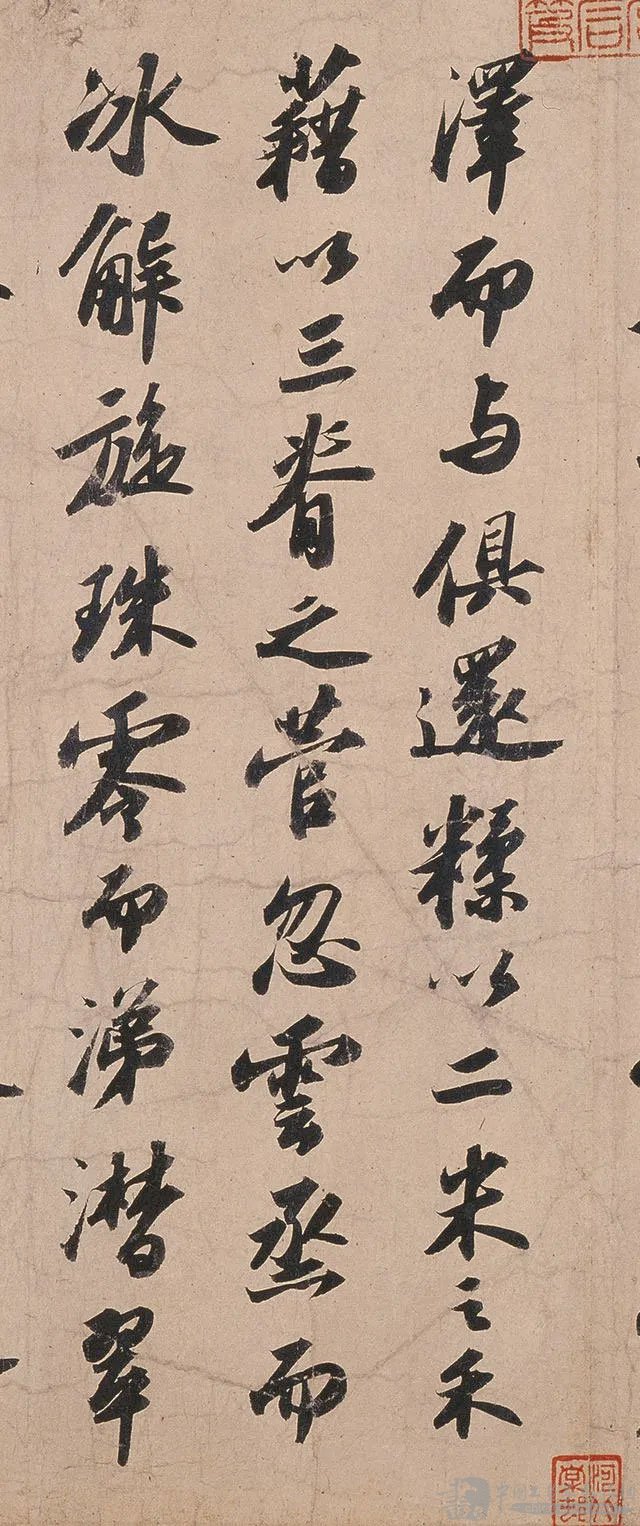 澤而与俱還糅以二米之禾
藉以三脊之菅忽雲烝而
冰解旋珠零而涕潸翠